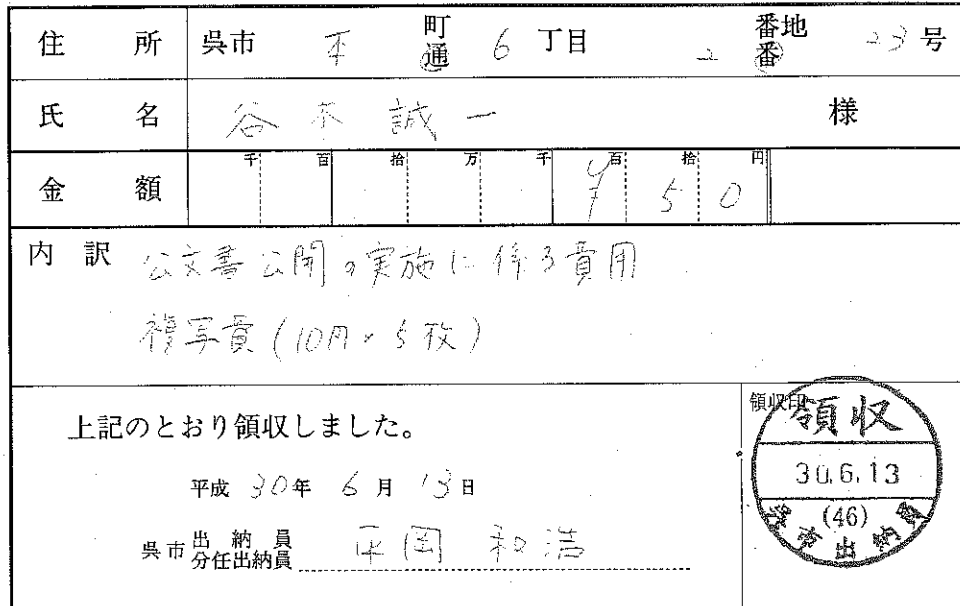 住 所 呉市 本 町 通 6 丁目 2 番地 番 23 号
氏 名 谷本 誠一 様
金 額 千 百 拾 万 千 百 拾 円 ¥50
内 訳 公文書公開の実施に係る費用
複写費(10円×5枚)
上記のとおり領収しました。
領収印
平成 30年 6月 13日
呉市 出納員 分任出納員 平岡 和浩
領収
30.6.13
(46)
呉市出納員